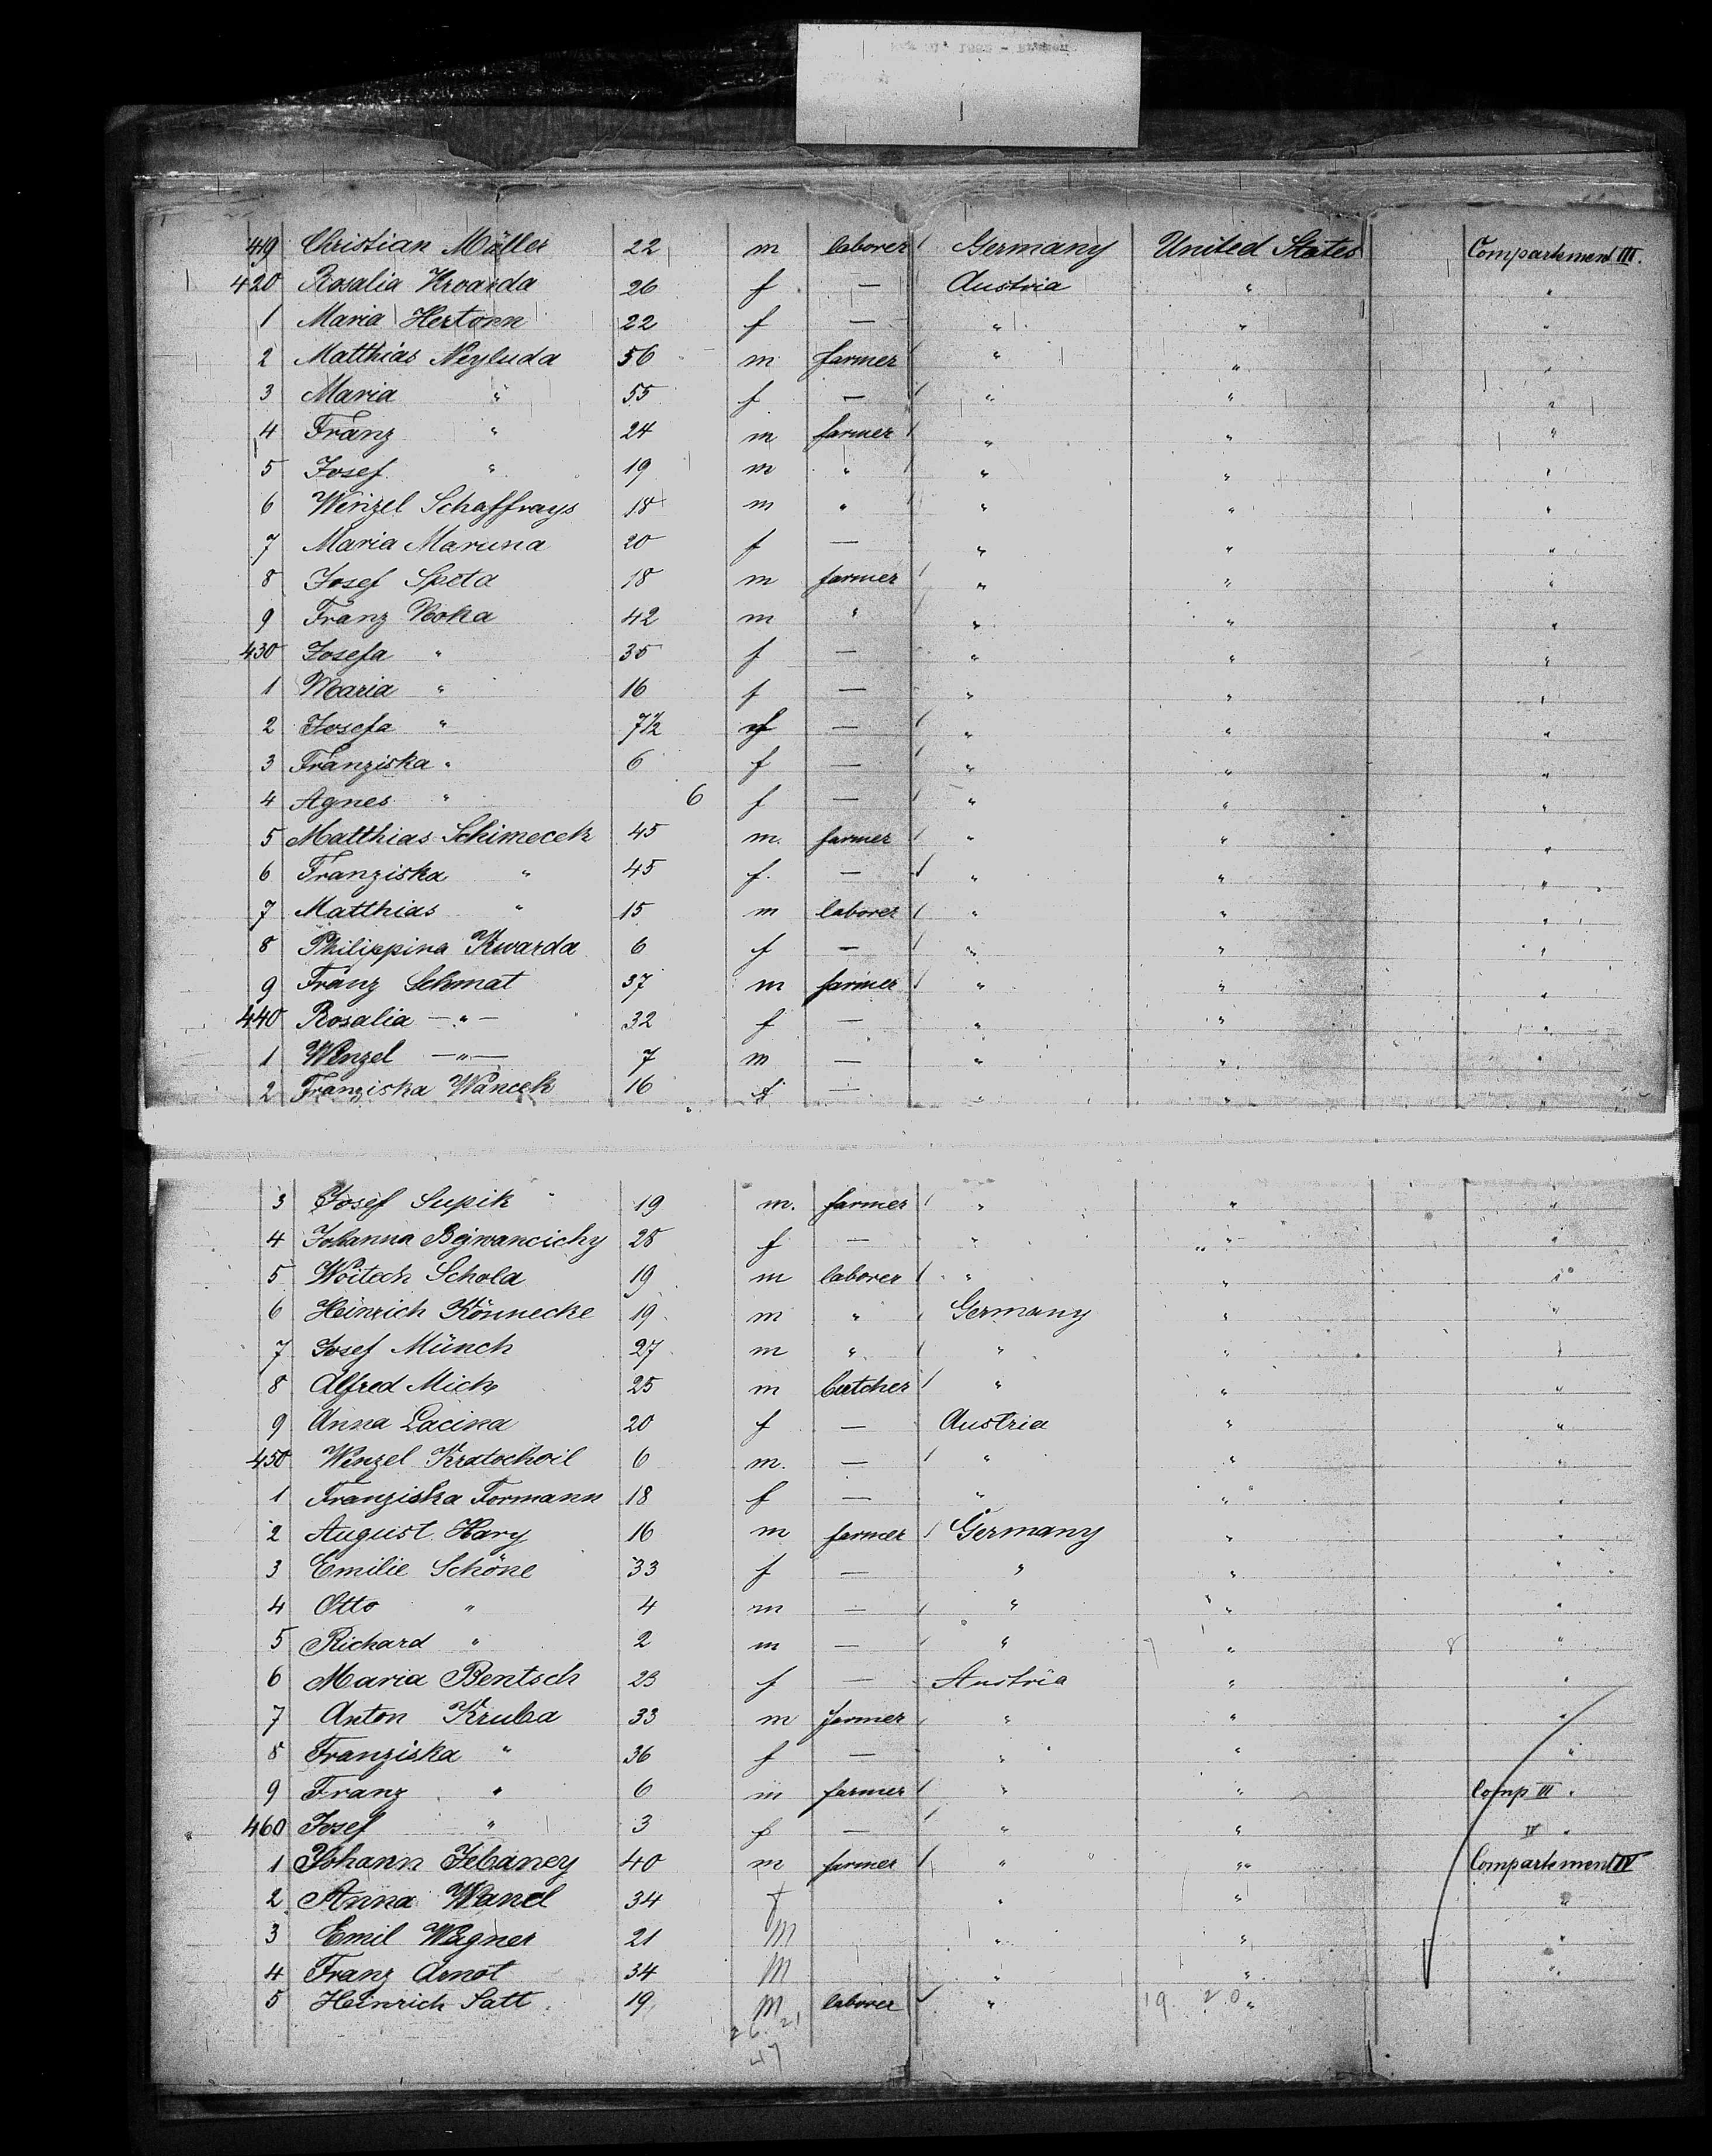 419 Christian Müller 22 m laborer Germany United States Compartement III.
420 Rosalia Kroarda 26 f — Austria " "
1 Maria Hertorn 22 f — " " "
2 Matthias Neyluda 56 m farmer " " "
3 Maria " 55 f — " " "
4 Franz " 24 m farmer " " "
5 Josef " 19 m " " " "
6 Wenzel Schaffrays 18 m " " " "
7 Maria Maruna 20 f — " " "
8 Josef Speta 18 m farmer " " "
9 Franz Koka 42 m " " " "
430 Josefa " 35 f — " " "
1 Maria " 16 f — " " "
2 Josefa " 7½ f — " " "
3 Franziska " 6 f — " " "
4 Agnes " 6 f — " " "
5 Matthias Schimecek 45 m. farmer " " "
6 Franziska " 45 f. — " " "
7 Matthias " 15 m laborer " " "
8 Philippina Kwarda 6 f — " " "
9 Franz Schmat 37 m farmer " " "
440 Rosalia —"— 32 f — " " "
1 Wenzel —"— 7 m — " " "
2 Franziska Wancek 16 f — " " "
3 Josef Supik 19 m. farmer " " "
4 Johanna Bejwancicky 28 f — " " "
5 Woitech Schola 19 m laborer " " "
6 Heinrich Könnecke 19 m " Germany " "
7 Josef Münch 27 m " " " "
8 Alfred Mick 25 m butcher " " "
9 Anna Lacina 20 f — Austria " "
450 Wenzel Kratochvil 6 m. — " " "
1 Franziska Formann 18 f — " " "
2 August Hary 16 m farmer Germany " "
3 Emilie Schöne 33 f — " " "
4 Otto " 4 m — " " "
5 Richard " 2 m — " 7 " 8 "
6 Maria Bentsch 23 f — Austria " "
7 Anton Kruba 33 m farmer " " "
8 Franziska " 36 f — " " "
9 Franz " 6 m farmer " " Comp III "
460 Josef " 3 f — " " IV "
1 Johann Zebaney 40 m farmer " " Compartement IV
2 Anna Wanel 34 f " " "
3 Emil Wagner 21 m " " "
4 Franz Arnot 34 m " " "
5 Heinrich Satt 19 m laborer " 19 20 "
26 21
47